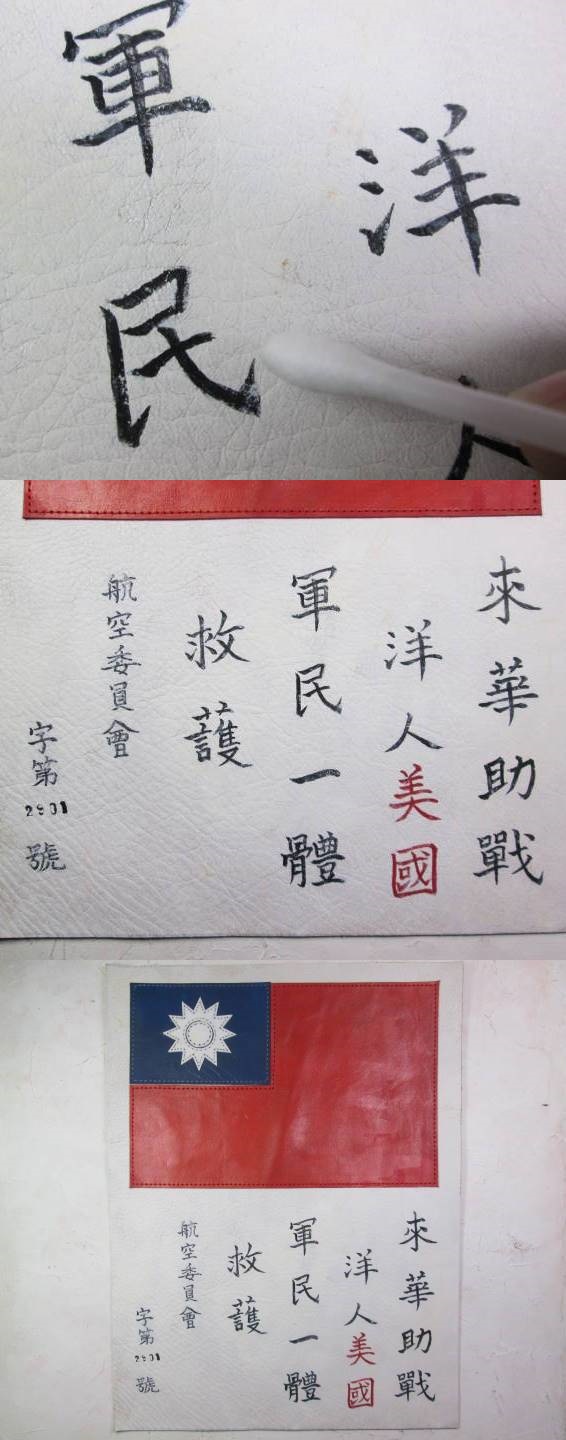 洋人
軍民
來華助戰
洋人美國
軍民一體
救護
航空委員會
字第 號
來華助戰
洋人美國
軍民一體
救護
航空委員會
字第 號